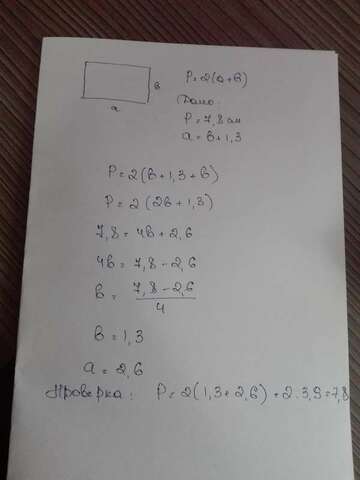 в
а
P = 2(а + в)
Дано:
P = 7,8 см
a = в + 1,3
P = 2(в + 1,3 + в)
P = 2(2в + 1,3)
7,8 = 4в + 2,6
4в = 7,8 - 2,6
в = 7,8 - 2,6
4
в = 1,3
a = 2,6
Проверка: P = 2(1,3 + 2,6) = 2·3,9 = 7,8